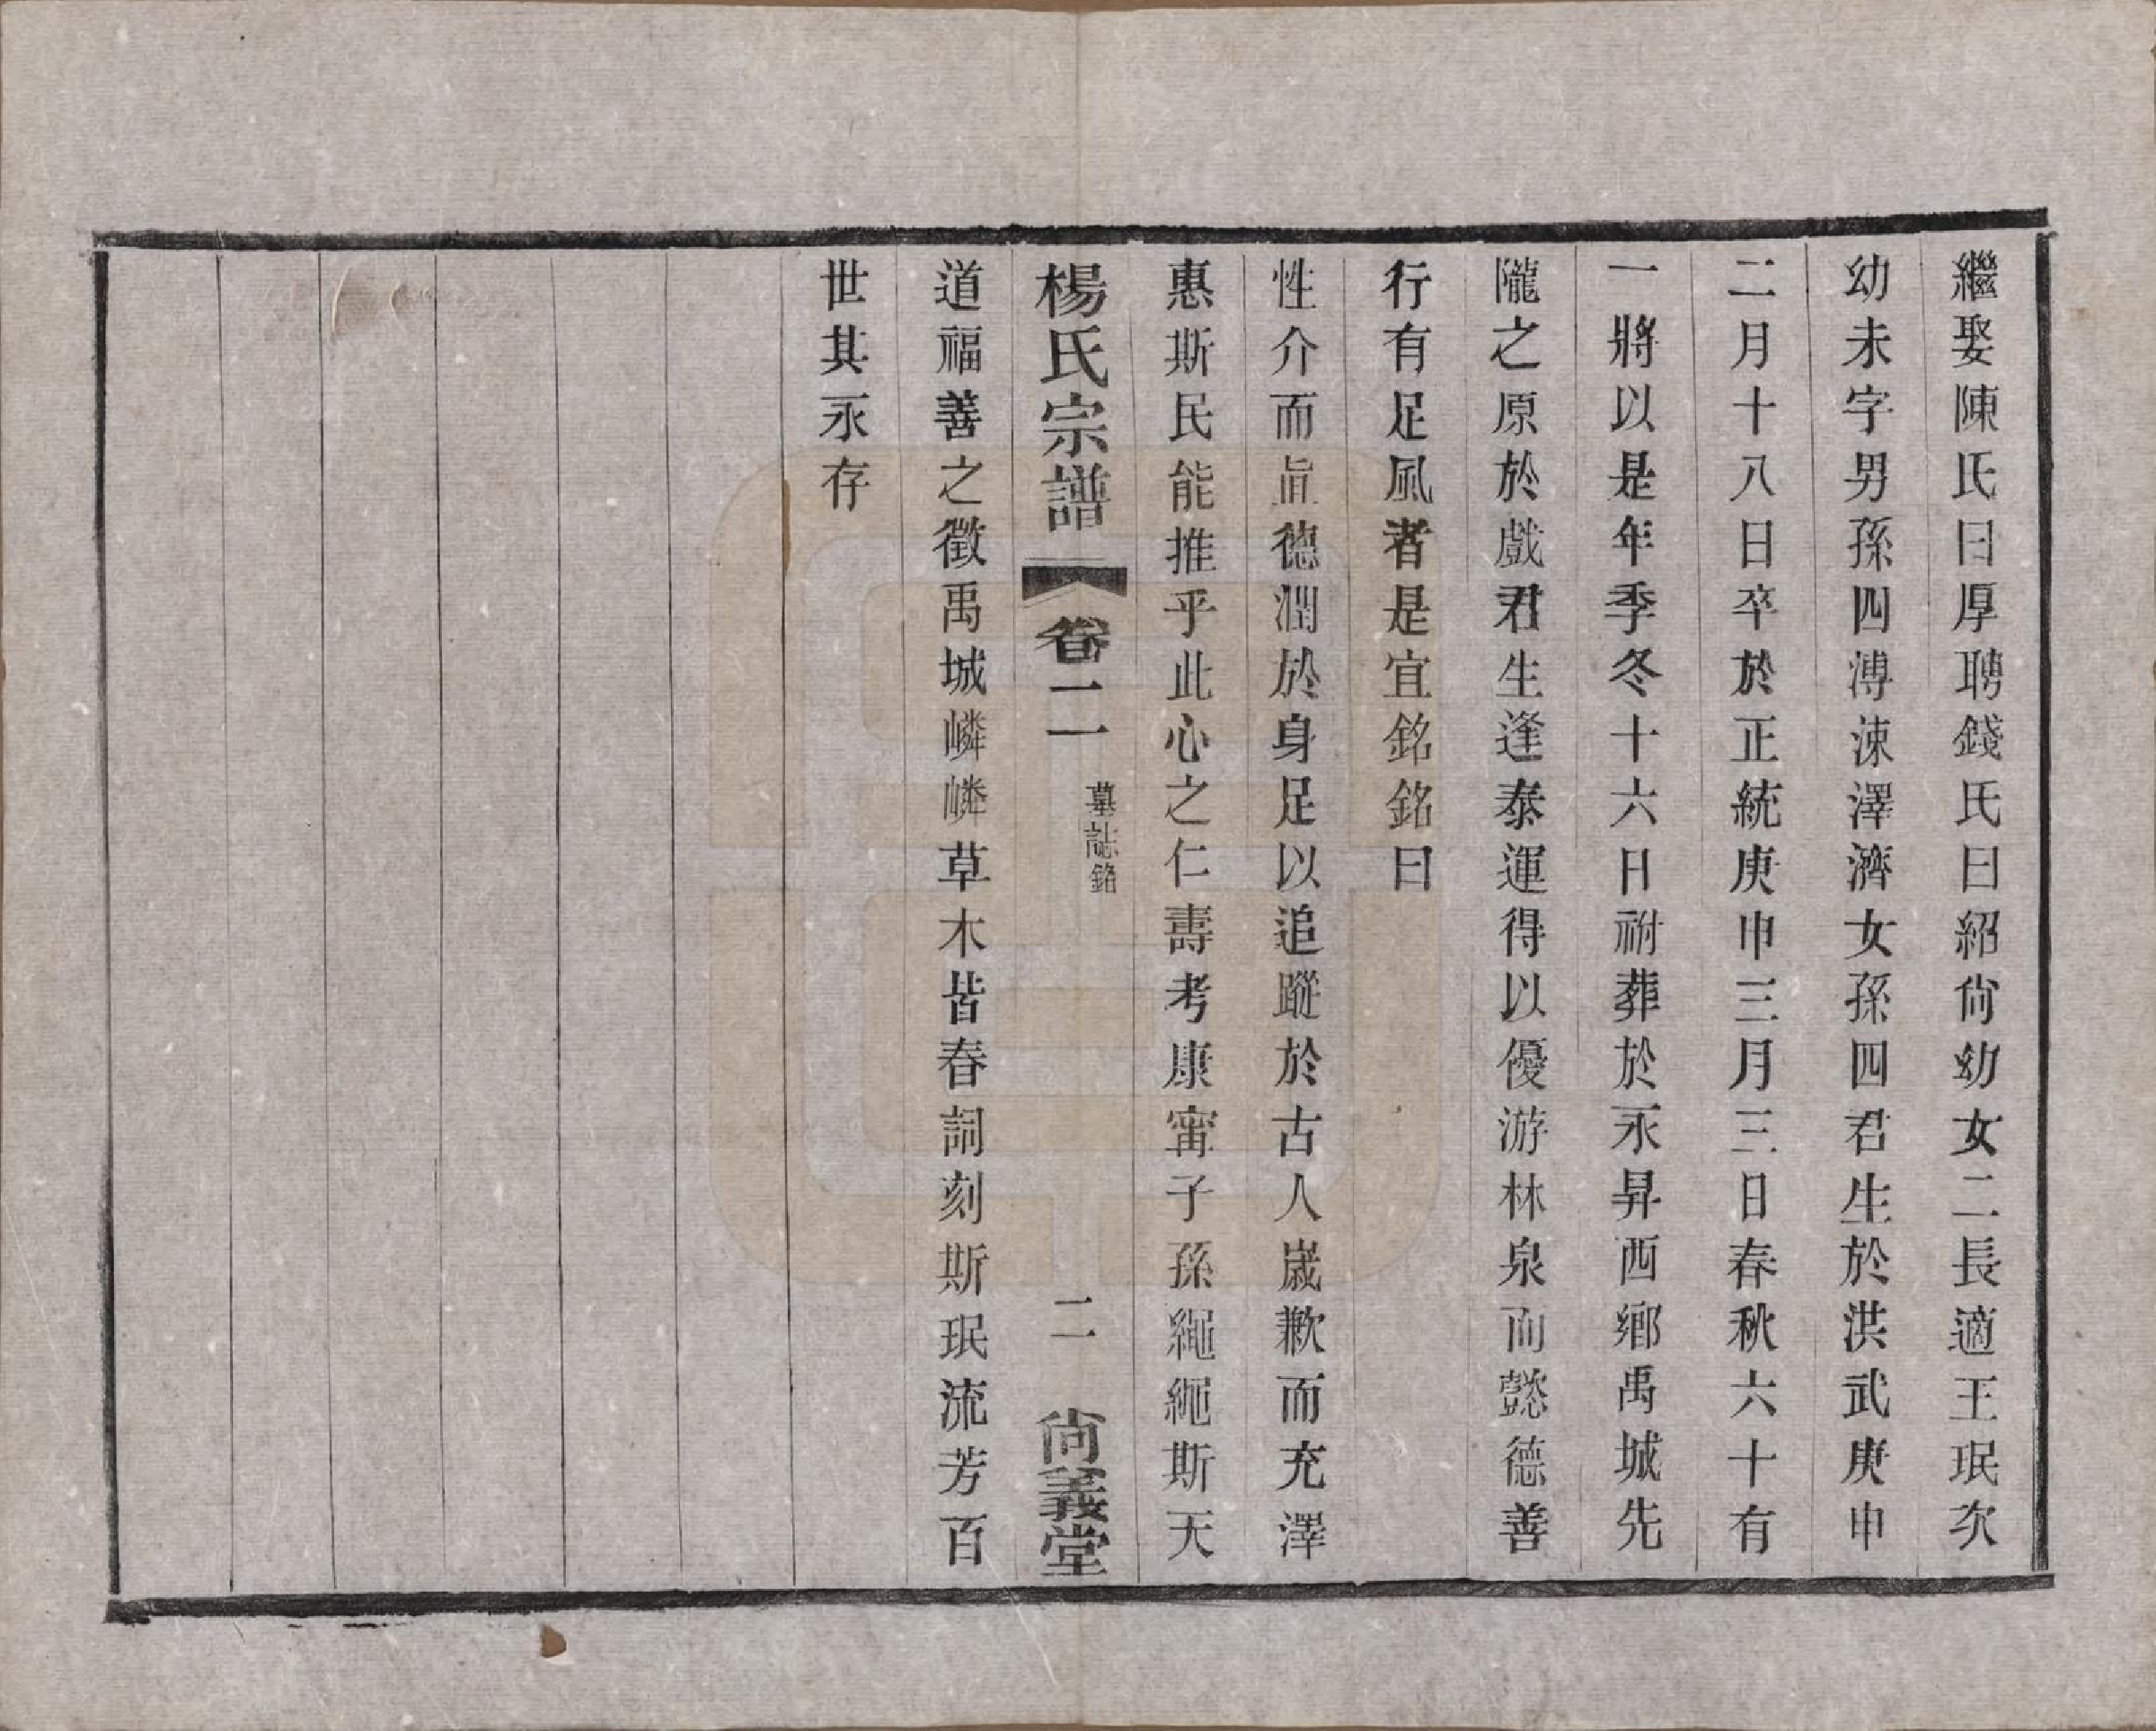 繼娶陳氏曰厚聘錢氏曰紹尙幼女二長適王珉次
幼未字男孫四溥涑澤濟女孫四君生於洪武庚申
二月十八日卒於正統庚申三月三日春秋六十有
一將以是年季冬十六日祔葬於永昇西鄉禹城先
隴之原於戲君生逢泰運得以優游林泉而懿德善
行有足風者是宜銘銘曰
性介而眞德潤於身足以追蹤於古人嵗歉而充澤
惠斯民能推乎此心之仁壽考康甯子孫繩繩斯天
楊氏宗譜 卷二 墓誌銘 二 尙義堂
道福善之徵禹城嶙嶙草木皆春詞刻斯珉流芳百
世其永存